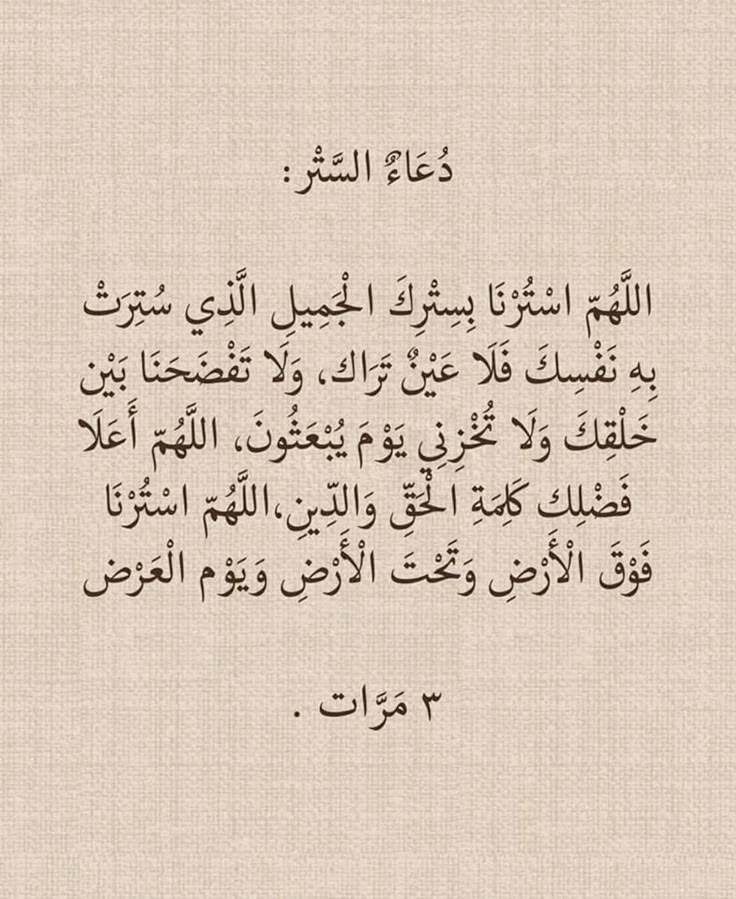 دُعَاءٌ السَّتْر :
اللَّهُمّ اسْتُرْنَا بِسِتْرِكَ الْجَمِيلِ الَّذِي سُتِرَتْ
بِهِ نَفْسِكَ فَلَا عَيْنٌ تَرَاك، وَلَا تَفْضَحَنَا بَيْن
خَلْقِكَ وَلَا تُخْزِنِي يَوْمَ يُبْعَثُونَ، اللَّهُمّ أَعَلَا
فَضْلِك كَلِمَةِ الْحَقِّ وَالدِّينِ،اللَّهُمّ اسْتُرْنَا
فَوْقَ الْأَرْضِ وَتَحْتَ الْأَرْضِ وَيَوْم الْعَرْض
٣ مَرَّات .